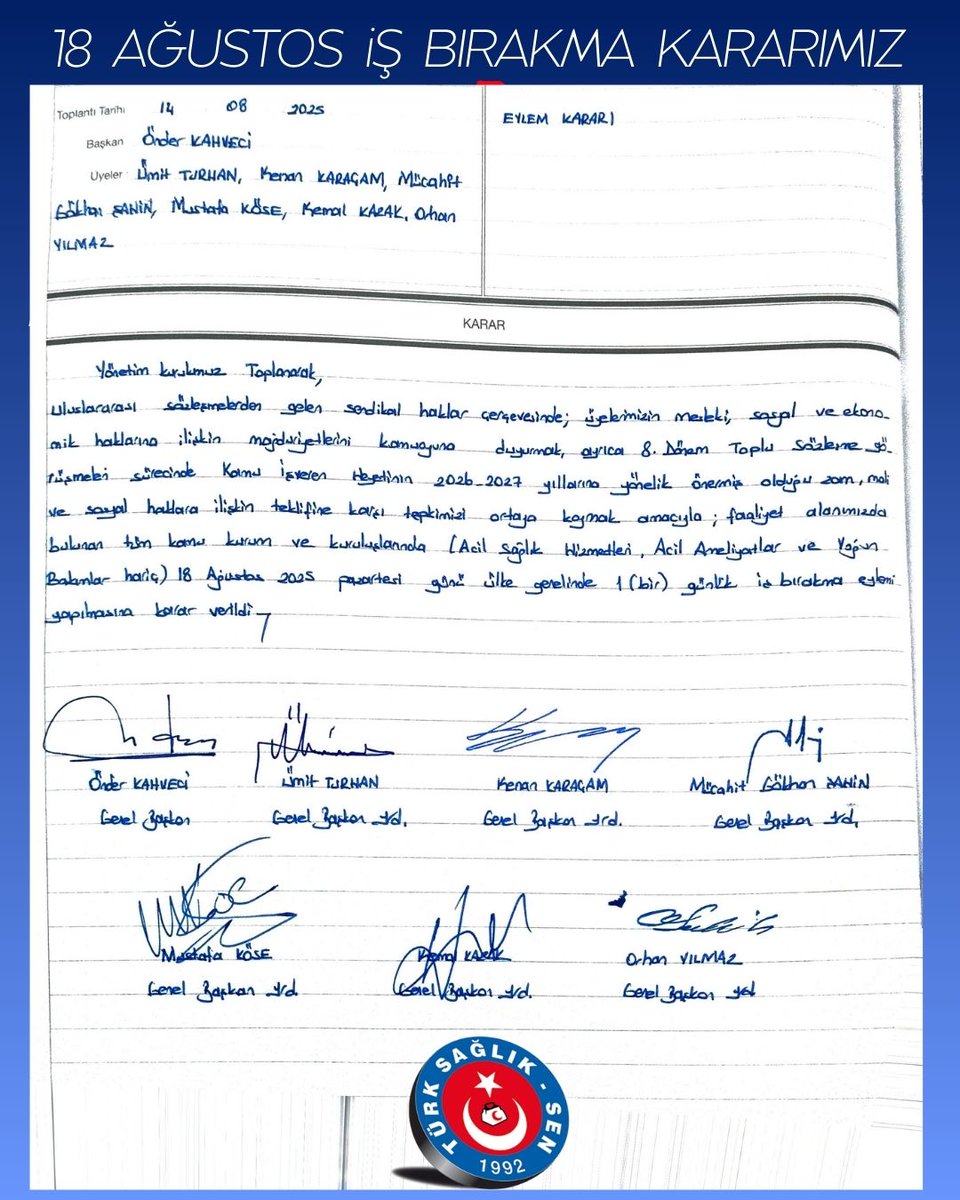 18 AĞUSTOS İŞ BIRAKMA KARARIMIZ
Toplantı Tarihi 14 08 2025
EYLEM KARARI
Başkan Önder KAHVECİ
Üyeler Ümit TURHAN, Kenan KARAÇAM, Mücahit
Gökhan ŞAHİN, Mustafa KÖSE, Kemal KAZAK, Orhan
YILMAZ
KARAR
Yönetim kurulumuz Toplanarak,
Uluslararası sözleşmelerden gelen sendikal haklar çerçevesinde; üyelerimizin mesleki, sosyal ve ekono-
mik haklarına ilişkin mağduriyetlerini kamuoyuna duyurmak, ayrıca 8. Dönem Toplu Sözleşme gö-
rüşmeleri sürecinde Kamu İşveren Heyetinin 2026-2027 yıllarına yönelik önermiş olduğu zam, mali
ve sosyal haklara ilişkin teklifine karşı tepkimizi ortaya koymak amacıyla; faaliyet alanımızda
bulunan tüm kamu kurum ve kuruluşlarında (Acil Sağlık Hizmetleri, Acil Ameliyatlar ve Yoğun
Bakımlar hariç) 18 Ağustos 2025 pazartesi günü ülke genelinde 1 (bir) günlük iş bırakma eylemi
yapılmasına karar verildi.
Önder KAHVECİ Ümit TURHAN Kenan KARAÇAM Mücahit Gökhan ŞAHİN
Genel Başkan Genel Başkan Yrd. Genel Başkan Yrd. Genel Başkan Yrd.
Mustafa KÖSE Kemal KAZAK Orhan YILMAZ
Genel Başkan Yrd. Genel Başkan Yrd. Genel Başkan Yrd
TÜRK SAĞLIK - SEN
1992